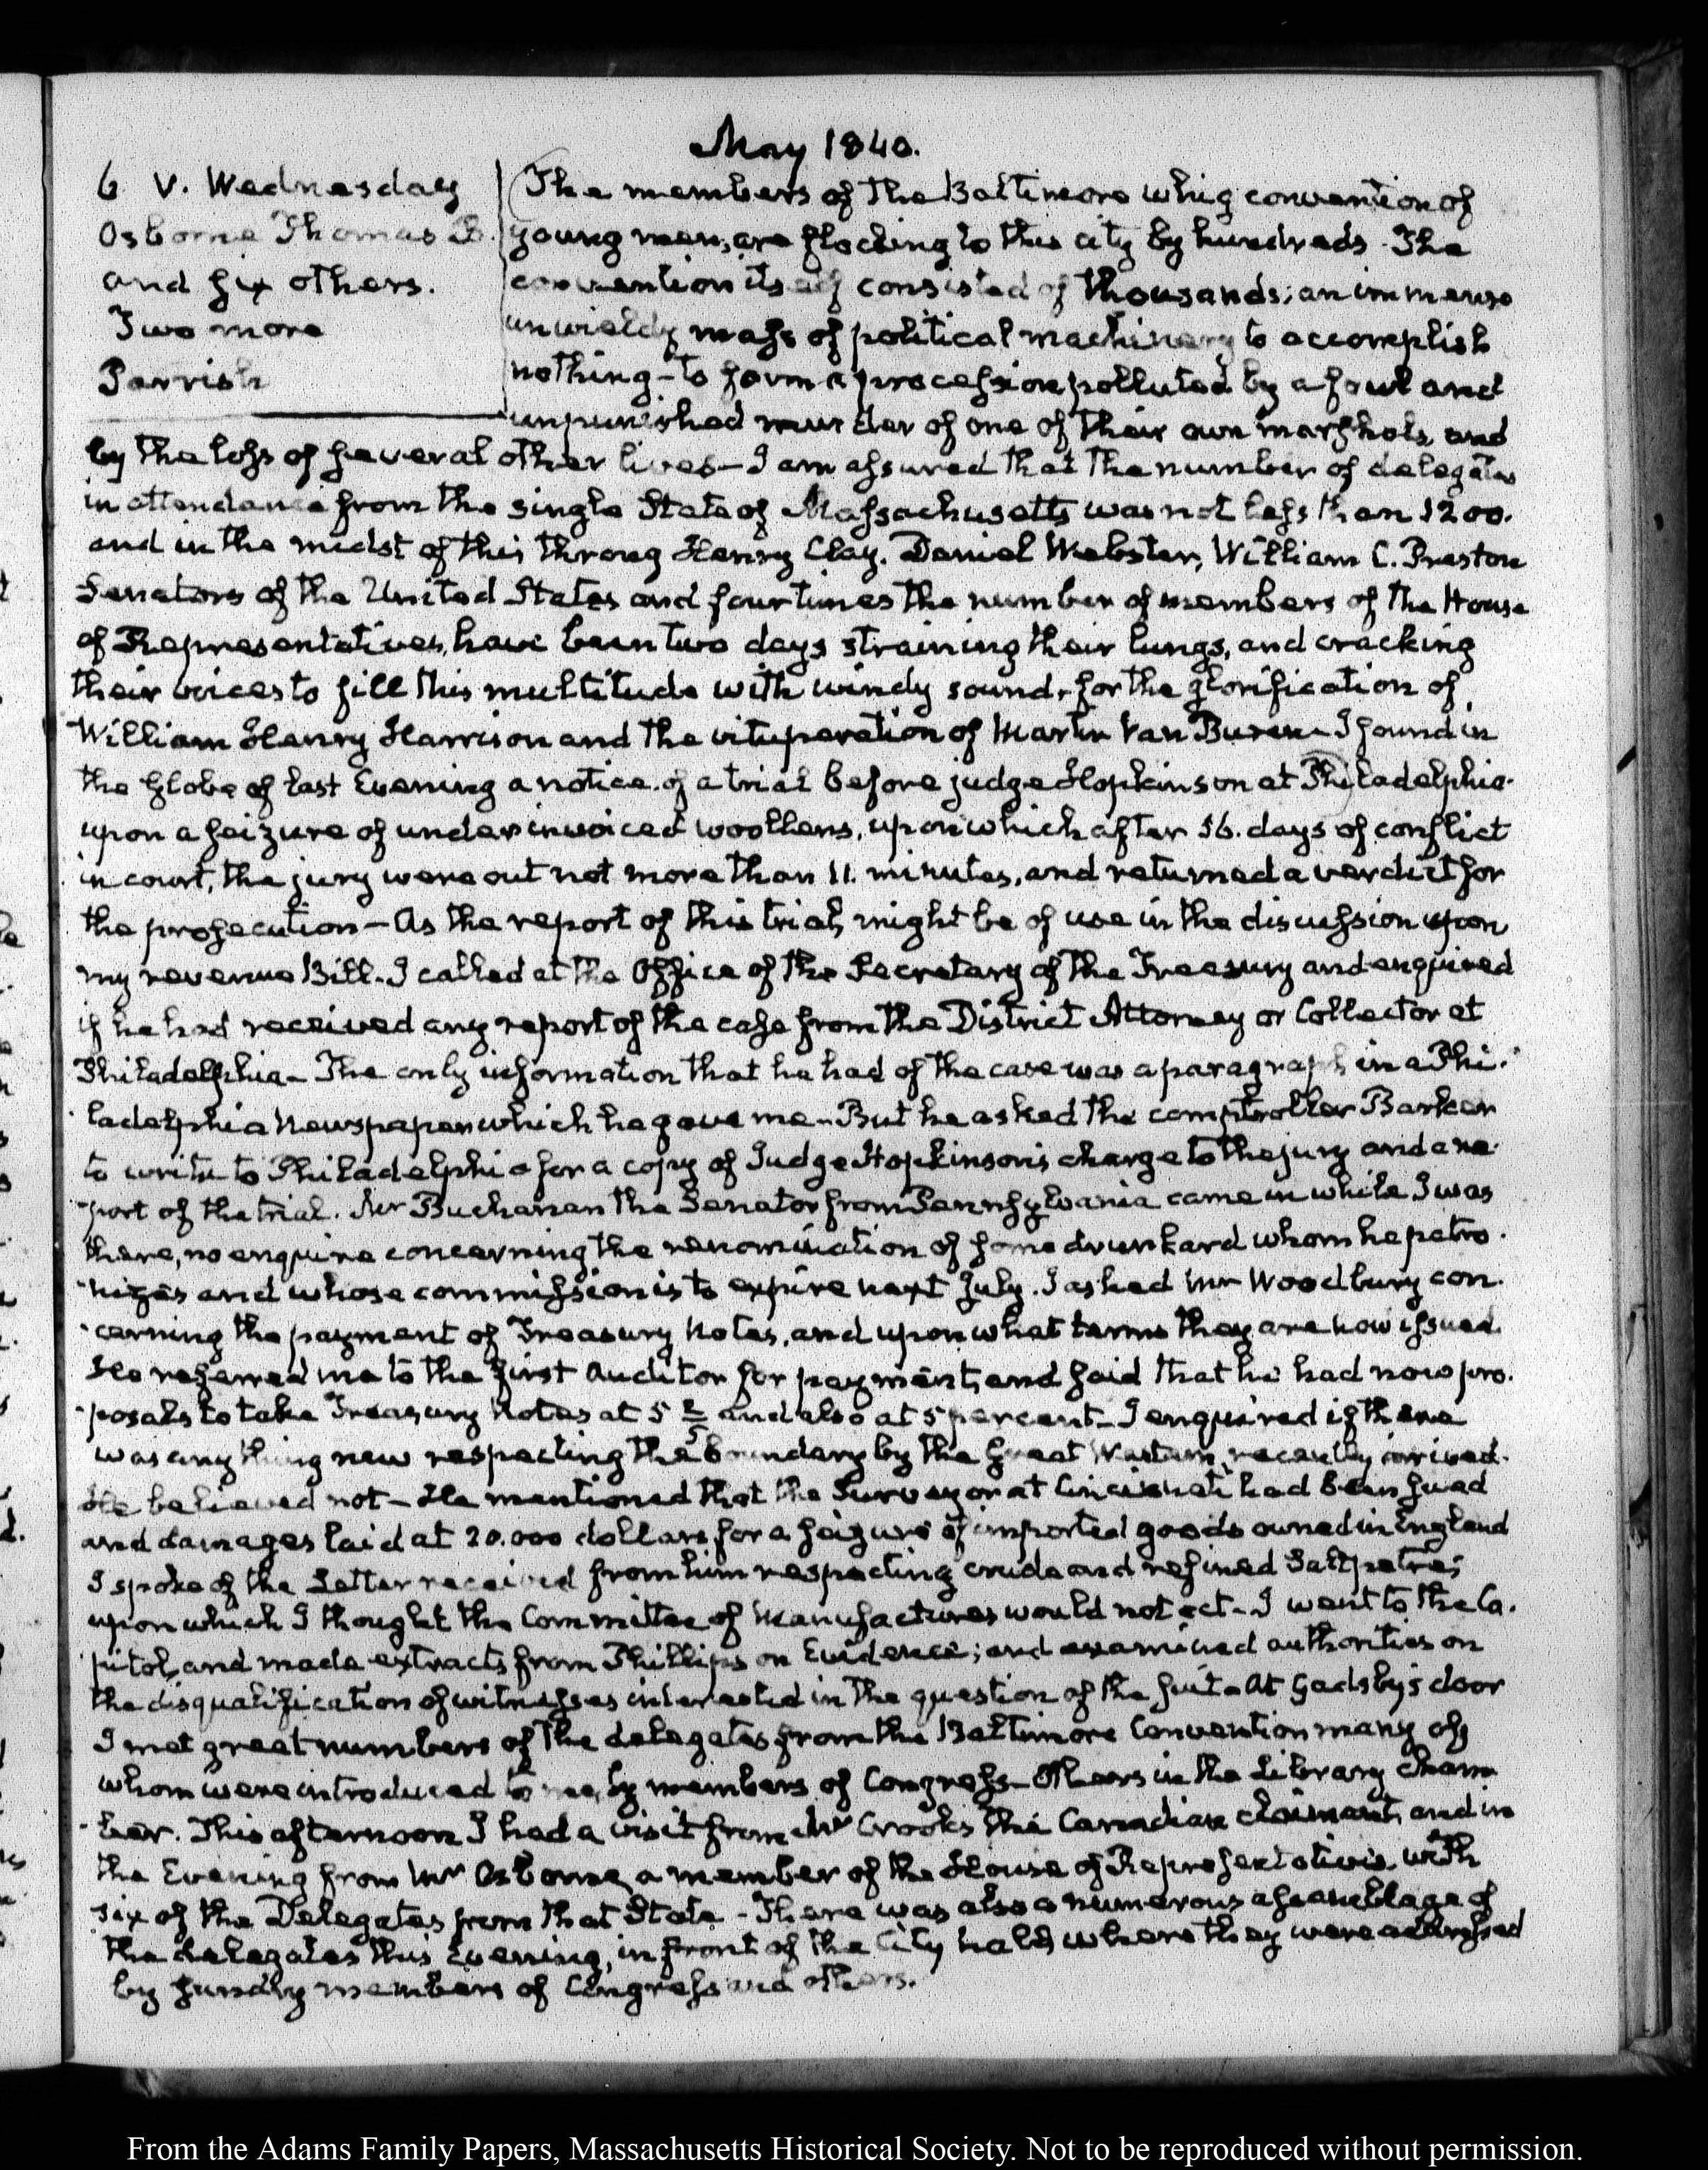 May 1840.
6 V. Wednesday
Osborne Thomas B.
and six others.
Two more
Parrish
The members of the Baltimore whig convention of
young men, are flocking to this city by hundreds. The
convention itself consisted of thousands; an immense
unwieldy mass of political machinery to accomplish
nothing – to form a procession polluted by a foul and
unpunished murder of one of their own marshals, and
by the loss of several other lives – I am assured that the number of delegates
in attendance from the single State of Massachusetts was not less than 1200.
and in the midst of this throng Henry Clay, Daniel Webster, William C. Preston
Senators of the United States and four times the number of members of the House
of Representatives, have been two days straining their lungs, and cracking
their voices to fill this multitude with windy sound, for the glorification of
William Henry Harrison and the vituperation of Martin Van Buren – I found in
the Globe of last Evening a notice of a trial before judge Hopkinson at Philadelphia
upon a seizure of under invoiced woollens, upon which after 16. days of conflict
in court, the jury were out not more than 11. minutes, and returned a verdict for
the prosecution – As the report of this trial, might be of use in the discussion upon
my revenue Bill. I called at the Office of the Secretary of the Treasury and enquired
if he had received any report of the case from the District Attorney or Collector at
Philadelphia – The only information that he had of the case was a paragraph in a Phi-
ladelphia Newspaper which he gave me – But he asked the comptroller Barker
to write to Philadelphia for a copy of Judge Hopkinson's charge to the jury and a re-
port of the trial. Mr Buchanan the Senator from Pennsylvania came in while I was
there, to enquire concerning the renomination of some drunkard whom he patro-
nizes and whose commission is to expire next July. I asked Mr Woodbury con-
cerning the payment of Treasury Notes, and upon what terms they are now issued.
He referred me to the first Auditor for payment, and said that he had now pro-
posals to take Treasury Notes at 5 2/5 and also at 5 per cent – I enquired if there
was any thing new respecting the boundary by the Great Western, recently arrived.
He believed not – He mentioned that the Surveyor at Cincinnati had been sued
and damages laid at 20.000 dollars for a seizure of imported goods owned in England
I spoke of the Letter received from him respecting crude and refined Saltpetre;
upon which I thought the Committee of Manufactures would not act – I went to the Ca-
pitol, and made extracts from Phillips on Evidence; and examined authorities on
the disqualification of witnesses interested in the question of the suit – At Gadsby's door
I met great numbers of the delegates from the Baltimore Convention many of
whom were introduced to me, by members of Congress – Others in the Library Cham-
ber. This afternoon I had a visit from Mr Crooks the Canadian claimant, and in
the Evening from Mr Osborne, a member of the House of Representatives. with
six of the Delegates from that State – There was also a numerous assemblage of
the delegates this Evening, in front of the City hall, where they were addressed
by sundry members of Congress and others.
From the Adams Family Papers, Massachusetts Historical Society. Not to be reproduced without permission.